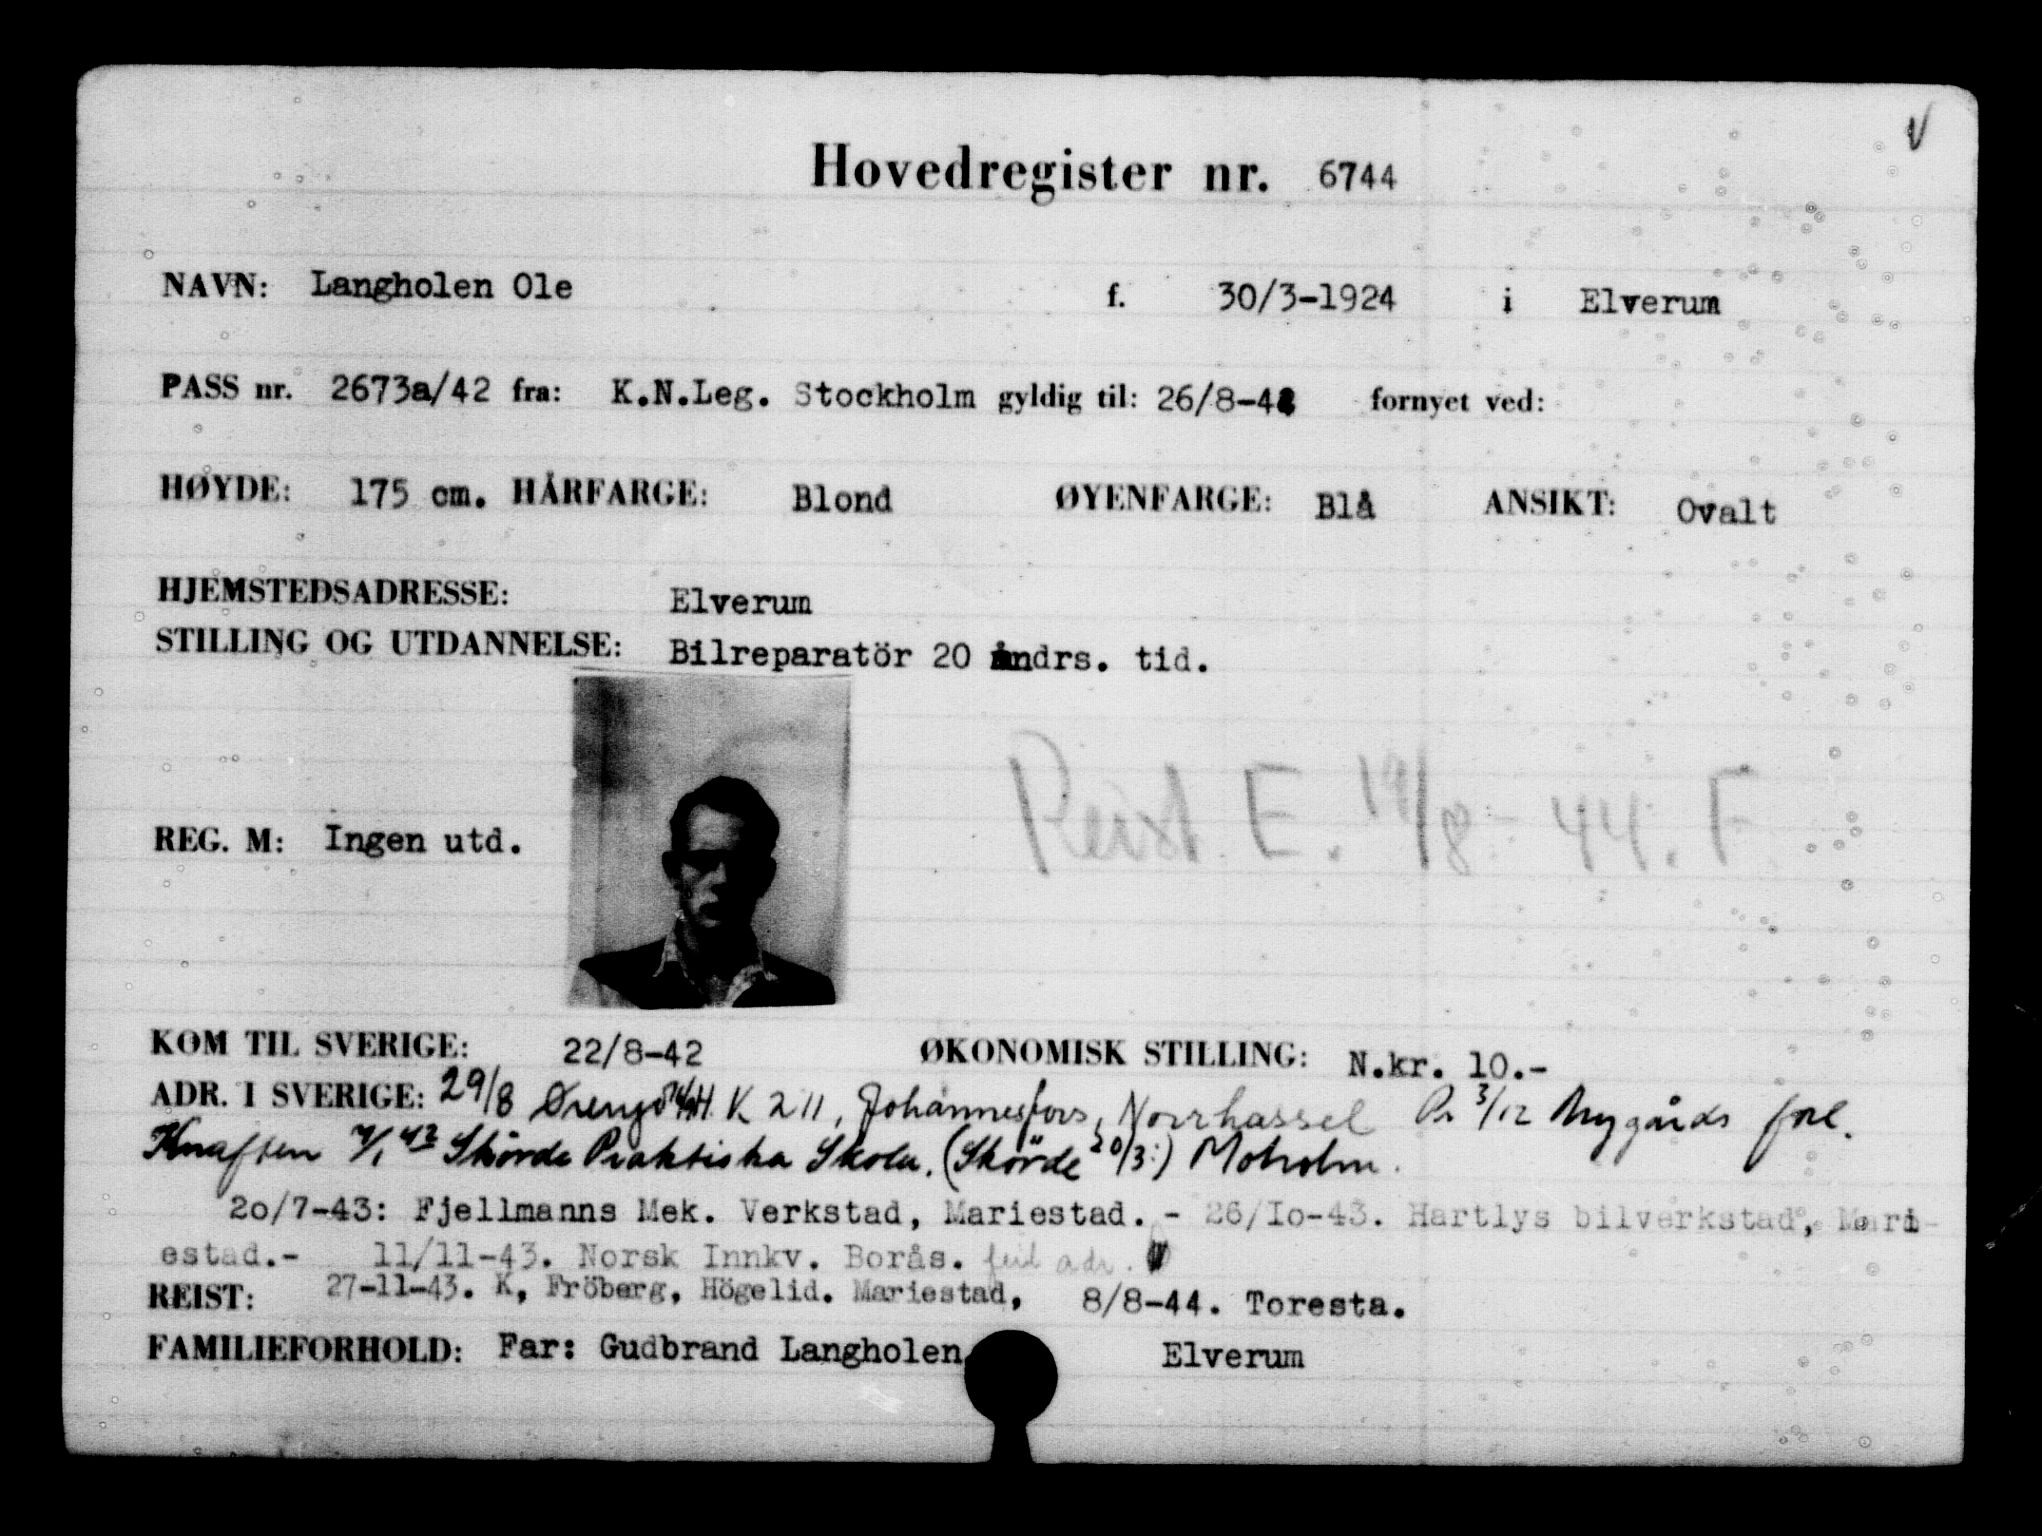 V
Hovedregister nr. 6744
NAVN: Langholen Ole f. 30/3-1924 i Elverum
PASS nr. 2673a/42 fra: K.N.Leg. Stockholm gyldig til: 26/8-44 fornyet ved:
HØYDE: 175 cm. HÅRFARGE: Blond ØYENFARGE: Blå ANSIKT: Ovalt
HJEMSTEDSADRESSE: Elverum
STILLING OG UTDANNELSE: Bilreparatör 20 mndrs. tid.
Reist E. 19/8-44. F
REG. M: Ingen utd.
KOM TIL SVERIGE: 22/8-42 ØKONOMISK STILLING: N.kr. 10.-
ADR. I SVERIGE: 29/8 K 211, Johannesfors, Norrhassel 3/12 Nygårds forl.
Knaften Skövde Praktiska Skola. (Skövde 20/3:) Moholm.
2o/7-43: Fjellmanns Mek. Verkstad, Mariestad. - 26/Io-43. Hartlys bilverkstad, Mari-
estad.- 11/11-43. Norsk Innkv. Borås. feil adr.
REIST: 27-11-43. K, Fröberg, Högelid. Mariestad, 8/8-44. Toresta.
FAMILIEFORHOLD: Far: Gudbrand Langholen Elverum